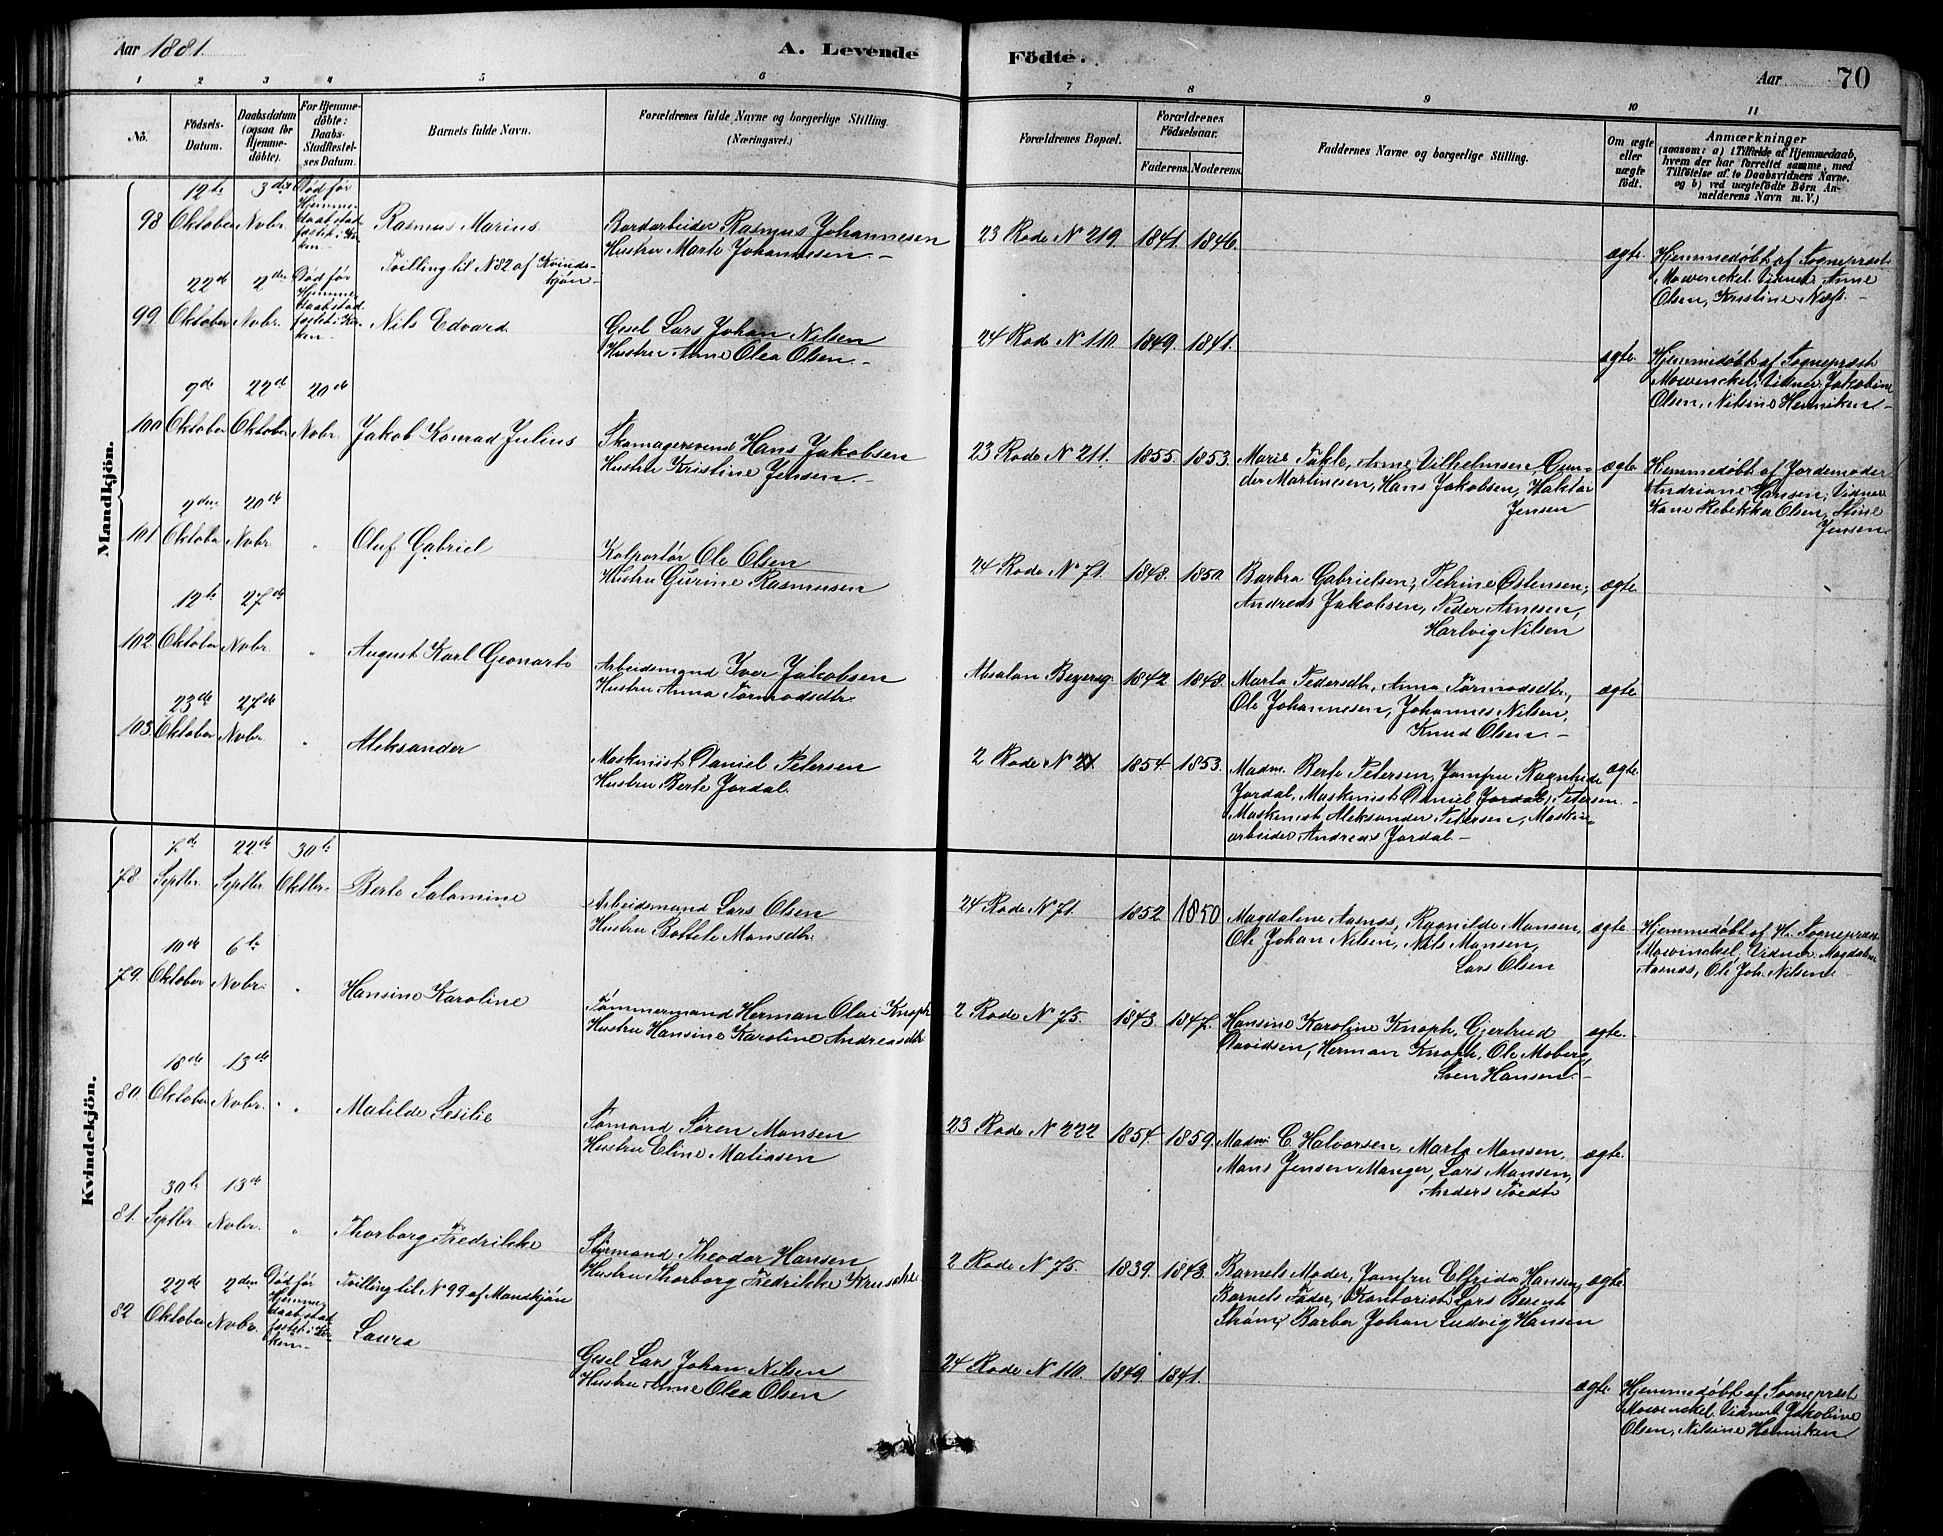 Aar 1881.
A. Levende Födte.
Aar 70
1 2 3 4 5 6 7 8 9 10 11
No.
Födsels-Datum.
Daabsdatum (ogsaa for Hjemmedöbte).
For Hjemmedöbte: Daabs-Stadfestelses Datum.
Barnets fulde Navn.
Forældrenes fulde Navne og borgerlige Stilling. (Næringsvei.)
Forældrenes Bopæl.
Forældrenes Fødselsaar.
Faderens. Moderens.
Faddernes Navne og borgerlige Stilling.
Om ægte eller uægte födt.
Anmærkninger
(saasom: a) i Tilfælde af Hjemmedaab, hvem der har forrettet samme, med Tilföielse af to Daabsvidners Navne. og b) ved uægtefödte Börn Anmelderens Navn m. V.)
Mandkjön.
98 12te Oktober 3die Novbr. Död før Hjemmedaab stadfæstet i Kirken
Rasmus Marius
Bordarbeider Rasmus Johannesen
Hustru Marte Johannesen
23 Rode N 219 1841. 1846.
ægte.
Hjemmedøbt af Sogneprest
Mowinckel. Vidner: Anne
Olsen, Kristine Næss.
Tvilling til N 82 af Kvindekjön
99. 22de Oktober 2den Novbr. Död før Hjemmedaab stadfæstet i Kirken
Nils Edvard
Gesel Lars Johan Nilsen
Hustru Anne Olea Olsen
24 Rode N 110 1849. 1841.
ægte
Hjemmedøbt af Sogneprest
Mowinckel. Vidner: Jakobine
Olsen, Nilsine Henriken
100 9de Oktober 22de Oktober 20de Novbr.
Jakob Konrad Julius
Skomagersvend Hans Jakobsen
Hustru Kristine Jensen
23 Rode N 211. 1855. 1853.
Marie Takle, Anne Vilhelmsen, Gunder Martinesen, Hans Jakobsen, Haktor
Jensen
ægte
Hjemmedøbt af Jordemoder
Andriane Hansen, Vidner
Kone Rebekka Olsen, Stine
Jensen
101 2den Oktober 20de Novbr.
Oluf Gabriel
Kolportör Ole Olsen
Hustru Gurine Rasmusen
24 Rode N 71. 1848. 1850.
Barbra Gabrielsen, Petrine Ostensen,
Andreas Jakobsen, Peder Arnesen,
Hartvig Nilsen
ægte
102 12te Oktober 27de Novbr.
August Karl Geonarts
Arbeidsmand Iver Jakobsen
Hustru Anna Tormodsdtr.
Absalon Beyersg. 1842 1848.
Marta Pedersdtr., Anna Tormodsdtr.,
Ole Johannesen, Johannes Nilsen,
Knud Olsen.
ægte.
103. 23de Oktober 27de Novbr.
Aleksander
Maskinist Daniel Petersen
Hustru Berte Jordal
2 Rode N 21 1854. 1853.
Madm. Berte Petersen, Jomfru Ragnhilde
Jordal, Maskinist Daniel Jordal, Petersen
Maskinist Aleksander Petersen, Maskinarbeider Andreas Jordal
ægte.
Kvindekjön.
78 7de Septbr. 22de Septbr. 30te Oktbr.
Berte Salomine
Arbeidsmand Lars Olsen
Hustru Bottele Monsdtr.
24 Rode N 71. 1852. 1850
Magdalene Aasnæs, Ragnilde Monsen,
Ole Johan Nilsen, Nils Monsen,
Lars Olsen
ægte.
Hjemmedøbt af H. Sogneprest
Mowinckel. Vidner: Magdalene
Aasnæs, Ole Joh. Nilsen
79. 10de Oktober 6te Novbr.
Hansine Karoline
Tømmermand Herman Olai Knoph
Hustru Hansine Karoline Andreasdtr
2 Rode N 75. 1843. 1847.
Hansine Karoline Knoph, Gjertrud
Davidsen, Herman Knoph, Ole Moberg,
Sven Hansen.
ægte.
80. 18de Oktober 13de Novbr.
Matilde Sesilie
Sømand Søren Monsen
Hustru Eline Matiasen
23 Rode N 222 1854. 1859.
Madm. C. Halvorsen, Marta Monsen,
Mons Jensen Manger, Lars Monsen,
Anders Tvedt
ægte.
81. 30te Septbr. 13de Novbr.
Thorborg Fredrikke
Styrmand Theodor Hansen
Hustru Thorborg Fredrikke Krusche
2 Rode N 75. 1839. 1843.
Barnets Moder, Jomfru Elfrida Hansen,
Barnets Fader, Kontorist Lars Berent
Barber Johan Ludvig Hansen
ægte
Tvilling til N 99 af Mandkjön
82 22de Oktober 2den Novbr. Död før Hjemmedaab stadfæstet i Kirken
Laura
Gesel Lars Johan Nilsen
Hustru Anne Olea Olsen
24 Rode N 110. 1849. 1841.
ægte
Hjemmedøbt af Sogneprest
Mowinckel. Vidner: Jakobine
Olsen, Nilsine Henriken